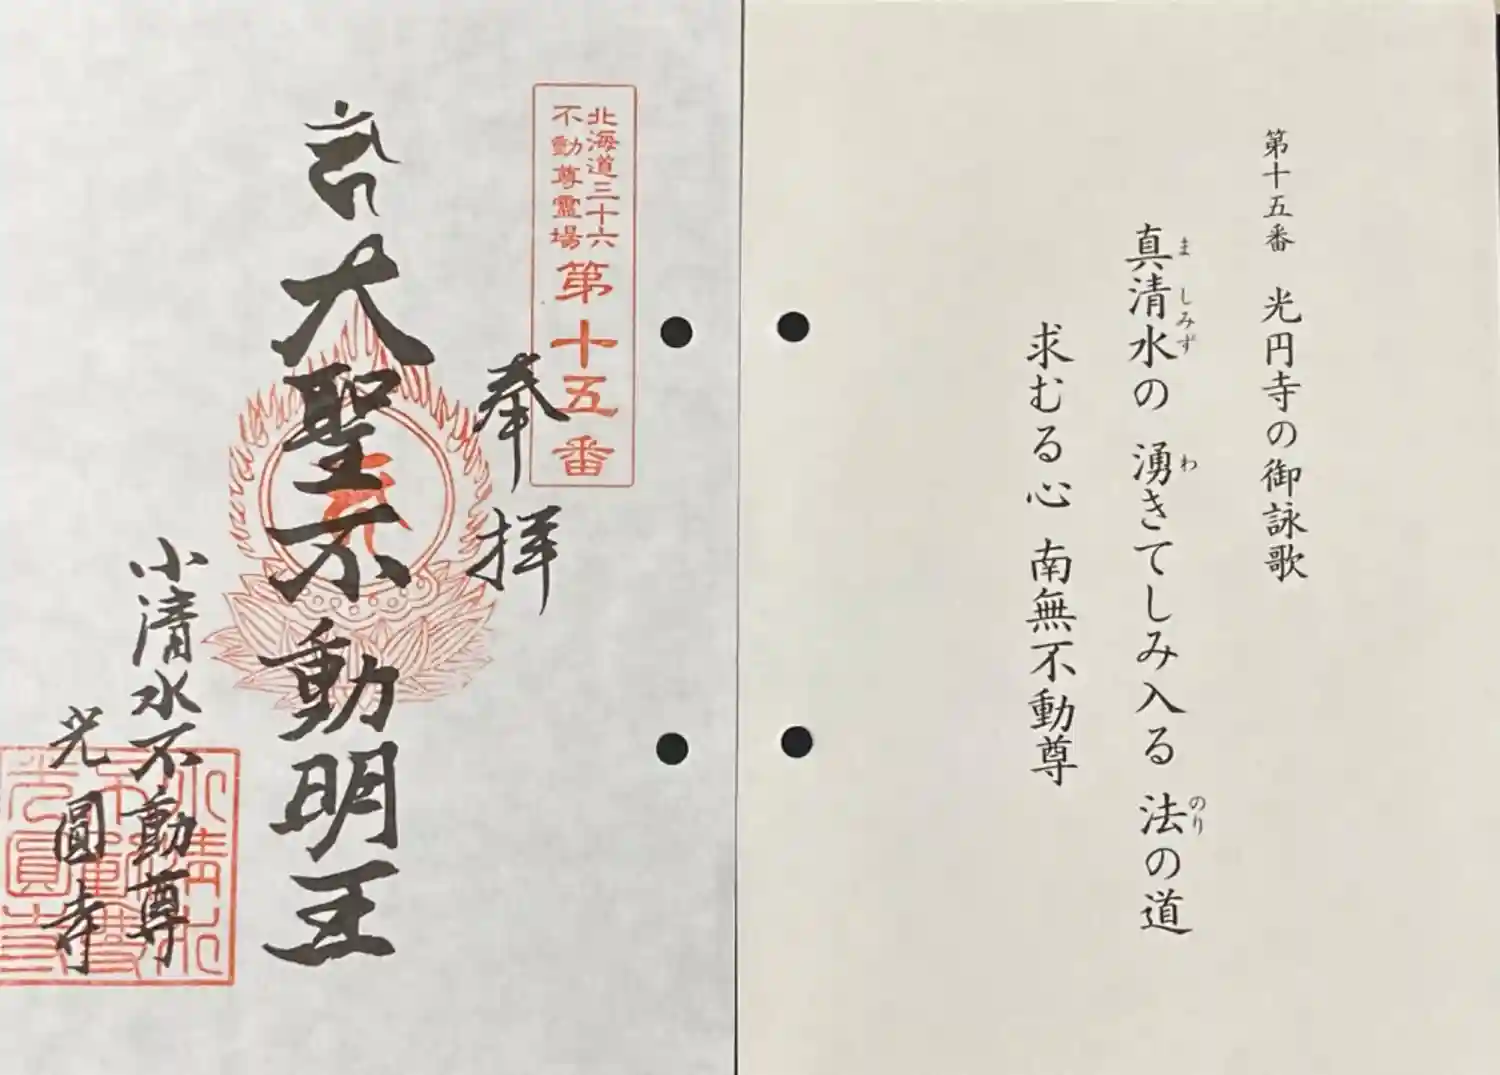 第十五番 光円寺の御詠歌
真清水の 湧きてしみ入る 法の道
ま しみず わ のり
求むる心 南無不動尊
北海道三十六
不動尊霊場
第十五番
奉拝
大聖不動明王
小清水不動尊
光圓寺